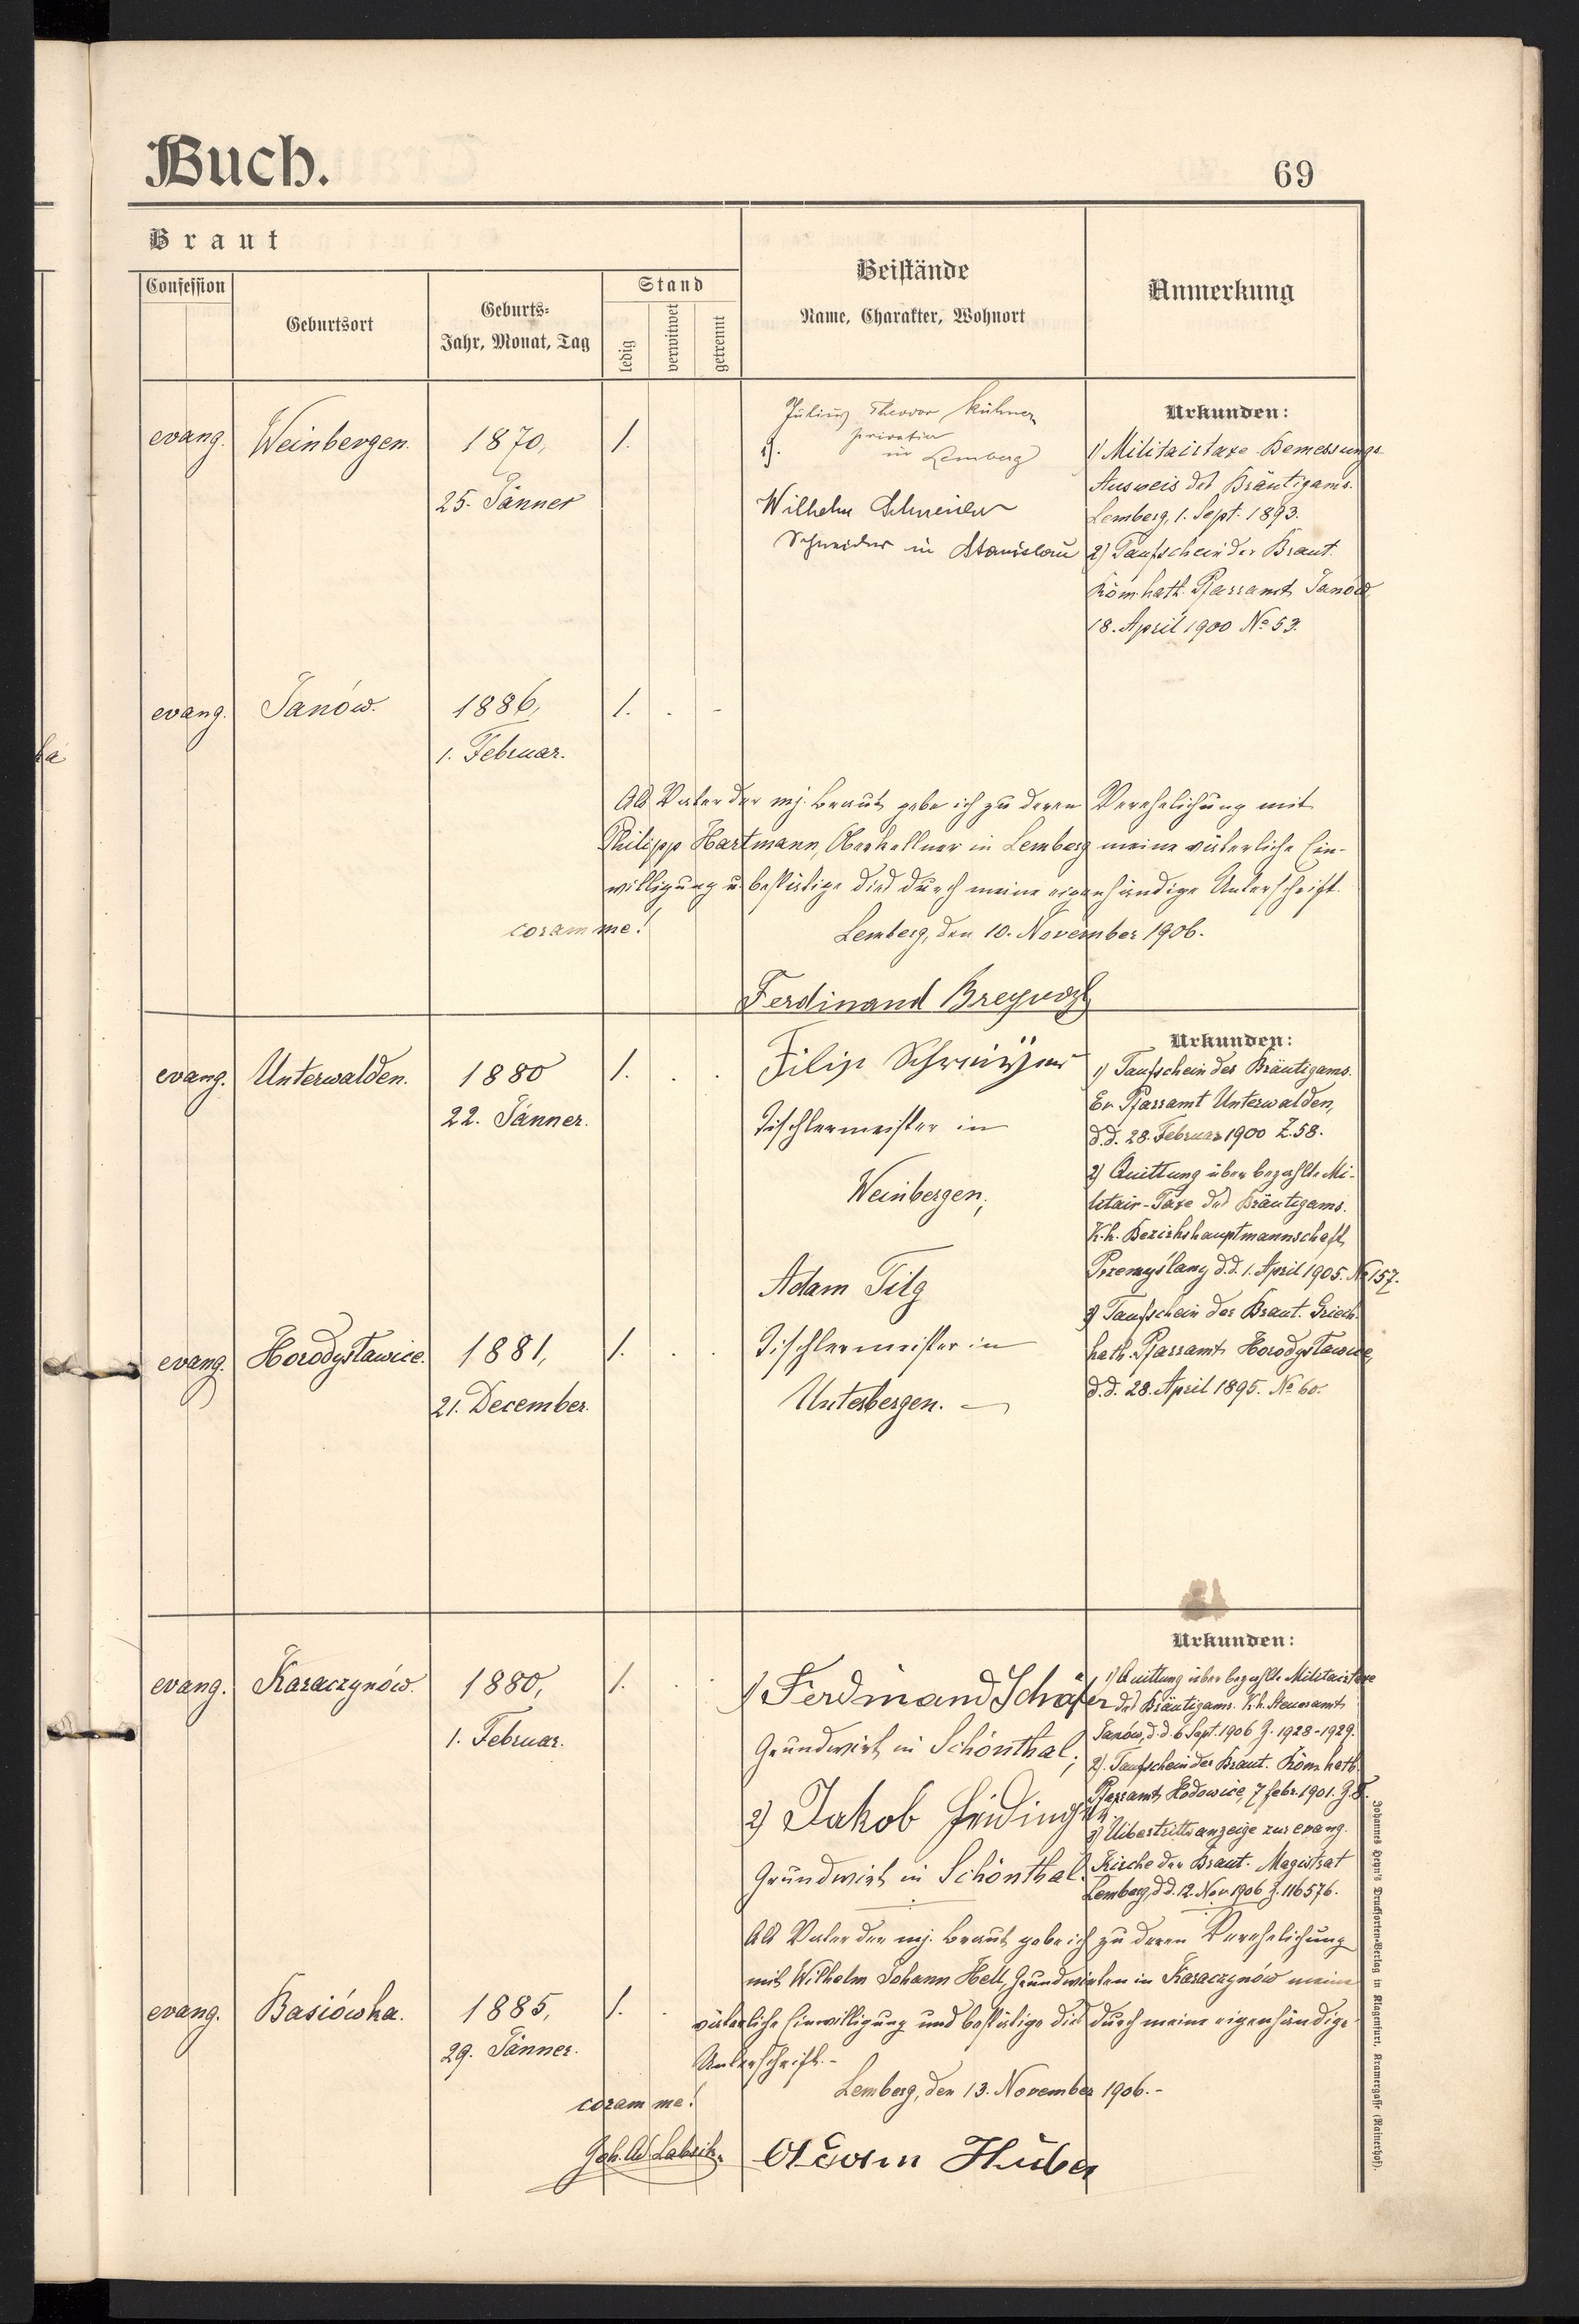 Buch.
69
Braut
Confession
Geburtsort
Geburts-
Jahr, Monat, Tag
Stand
ledig
verwitwet
getrennt
Beistände
Name, Charakter, Wohnort
Anmerkung
evang.
Weinbergen.
1870,
25. Jänner
1.
Julius Theodor Kühner
privatier
1). in Lemberg
Wilhelm Schneider
Schneider in Stanislau
Urkunden:
1) Militairtaxe-Bemessungs-
Ausweis des Bräutigams.
Lemberg, 1. Sept. 1893.
2) Taufschein der Braut.
Röm. kath. Pfarramt Janów,
18. April 1900 No 53.
evang.
Janów.
1886,
1. Februar.
1. . -
ka
Als Vater der mj. Braut gebe ich zu deren Verehelichung mit
Philipp Hartmann, Oberkellner in Lemberg meine väterliche Ein-
willigung u. bestätige dies durch meine eigenhändige Unterschrift.
coram me!
Lemberg, den 10. November 1906.
Ferdinand
evang.
Unterwalden.
1880
22. Jänner.
1. . .
Filip
Tischlermeister in
Weinbergen;
Adam Filg
Tischlermeister in
Unterbergen. —
Urkunden:
1) Taufschein des Bräutigams.
Ev. Pfarramt Unterwalden,
d.d. 28. Februar 1900 Z. 58.
2) Quittung über bezahlte Mi-
litair-Taxe des Bräutigams.
K.k. Bezirkshauptmannschaft
Przemyślany d.d. 1. April 1905. No 157.
3) Taufschein der Braut. Griech.
kath. Pfarramt Horodysławice,
d.d. 28. April 1895. No 60.
evang.
Horodysławice.
1881,
21. December.
1. . .
evang.
Karaczynów.
1880,
1. Februar.
1. . .
1) Ferdinand Schäfer
Grundwirt in Schönthal;
2) Jakob
Grundwirt in Schönthal.
Urkunden:
1) Quittung über bezahlte Militairtaxe
des Bräutigams. K.k. Steueramt
Janów, d.d. 6 Sept. 1906 Z. 1928-1929.
2). Taufschein der Braut. Röm. kath.
Pfarramt Hodowice, 7 febr. 1901. Z. 8.
3) Uibertrittsanzeige zur evang.
Kirche der Braut. Magistrat
Lemberg, d.d. 12. Nov. 1906 Z. 116576.
Als Vater der mj. Braut gebe ich zu deren Verehelichung
mit Wilhelm Johann Hell, Grundwirten in Karaczynów meine
väterliche Einwilligung und bestätige dies durch meine eigenhändige
Unterschrift.-
evang.
Basiówka.
1885,
29. Jänner.
1. .
Lemberg, den 13. November 1906.-
coram me!
Adam Huber
Johannes Heyn's Drucksorten-Verlag in Klagenfurt, Kramergasse (Rainerhof).